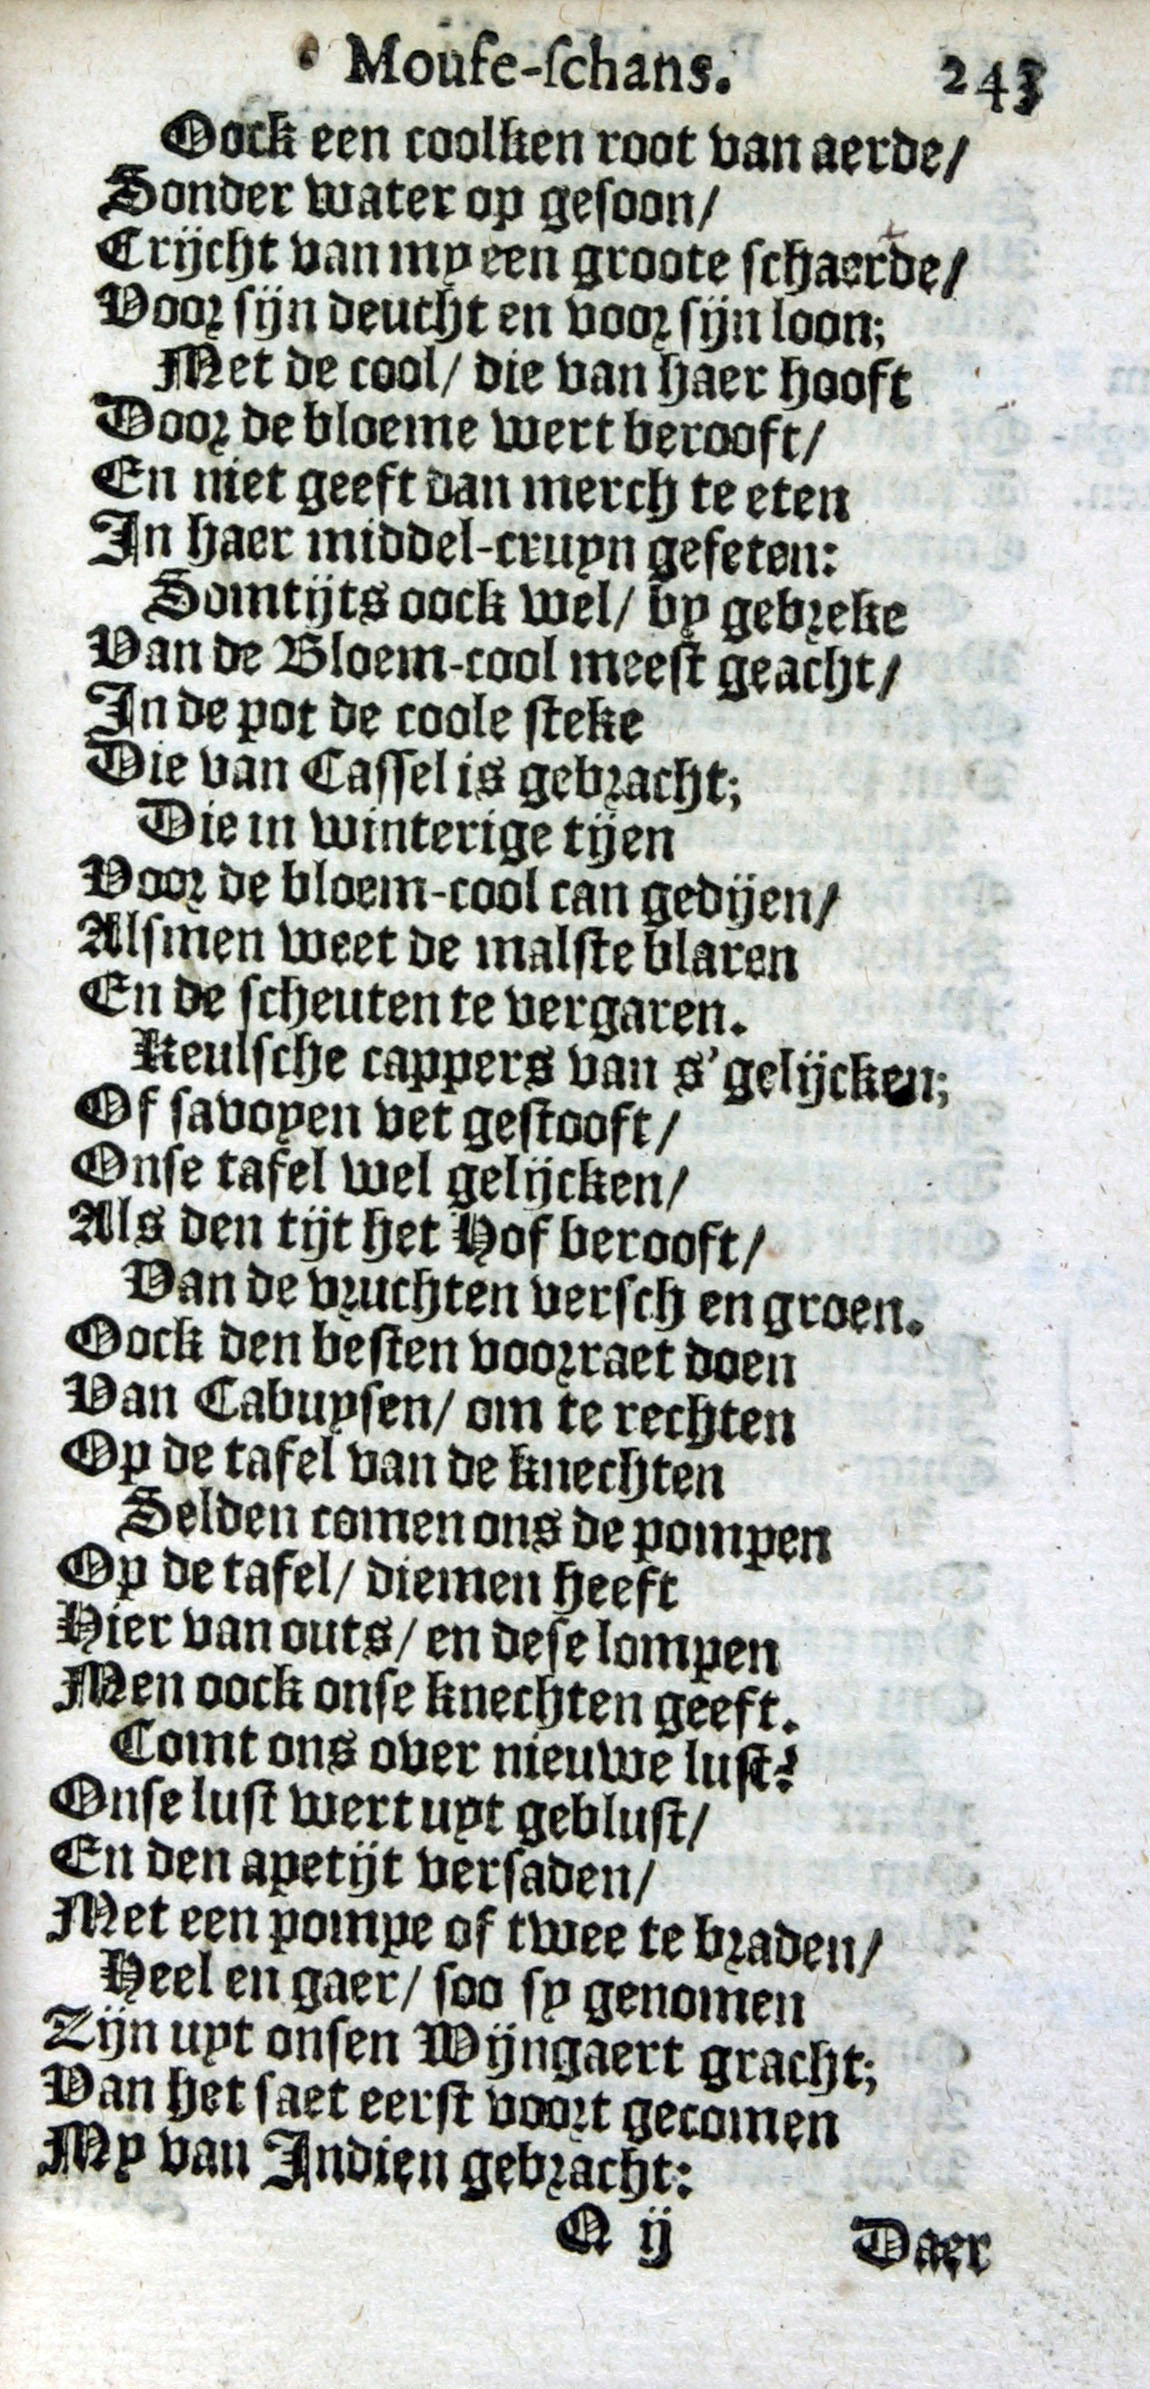 Moufe-schans. 243
Oock een coolken root van aerde/
Sonder water op gesoon/
Crijcht van my een groote schaerde/
Voor sijn deucht en voor sijn loon;
Met de cool/ die van haer hooft
Door de bloeme wert berooft/
En niet geeft dan merch te eten
In haer middel-cruyn geseten:
Somtijts oock wel/ by gebreke
Van de Bloem-cool meest geacht/
In de pot de coole steke
Die van Cassel is gebracht;
Die in winterige tijen
Voor de bloem-cool can gedijen/
Alsmen weet de malste blaren
En de scheuten te vergaren.
Keulsche cappers van s'gelijcken;
Of savoyen vet gestooft/
Onse tafel wel gelijcken/
Als den tijt het Hof berooft/
Van de vruchten versch en groen.
Oock den besten voorraet doen
Van Cabuysen/ om te rechten
Op de tafel van de knechten
Selden comen ons de pompen
Op de tafel/ diemen heeft
Hier van outs/ en dese lompen
Men oock onse knechten geeft.
Comt ons over nieuwe lust?
Onse lust wert uyt geblust/
En den apetijt versaden/
Met een pompe of twee te braden/
Heel en gaer/ soo sy genomen
Zijn uyt onsen Wijngaert gracht;
Van het saet eerst voort gecomen
My van Indien gebracht:
Q ij Daer